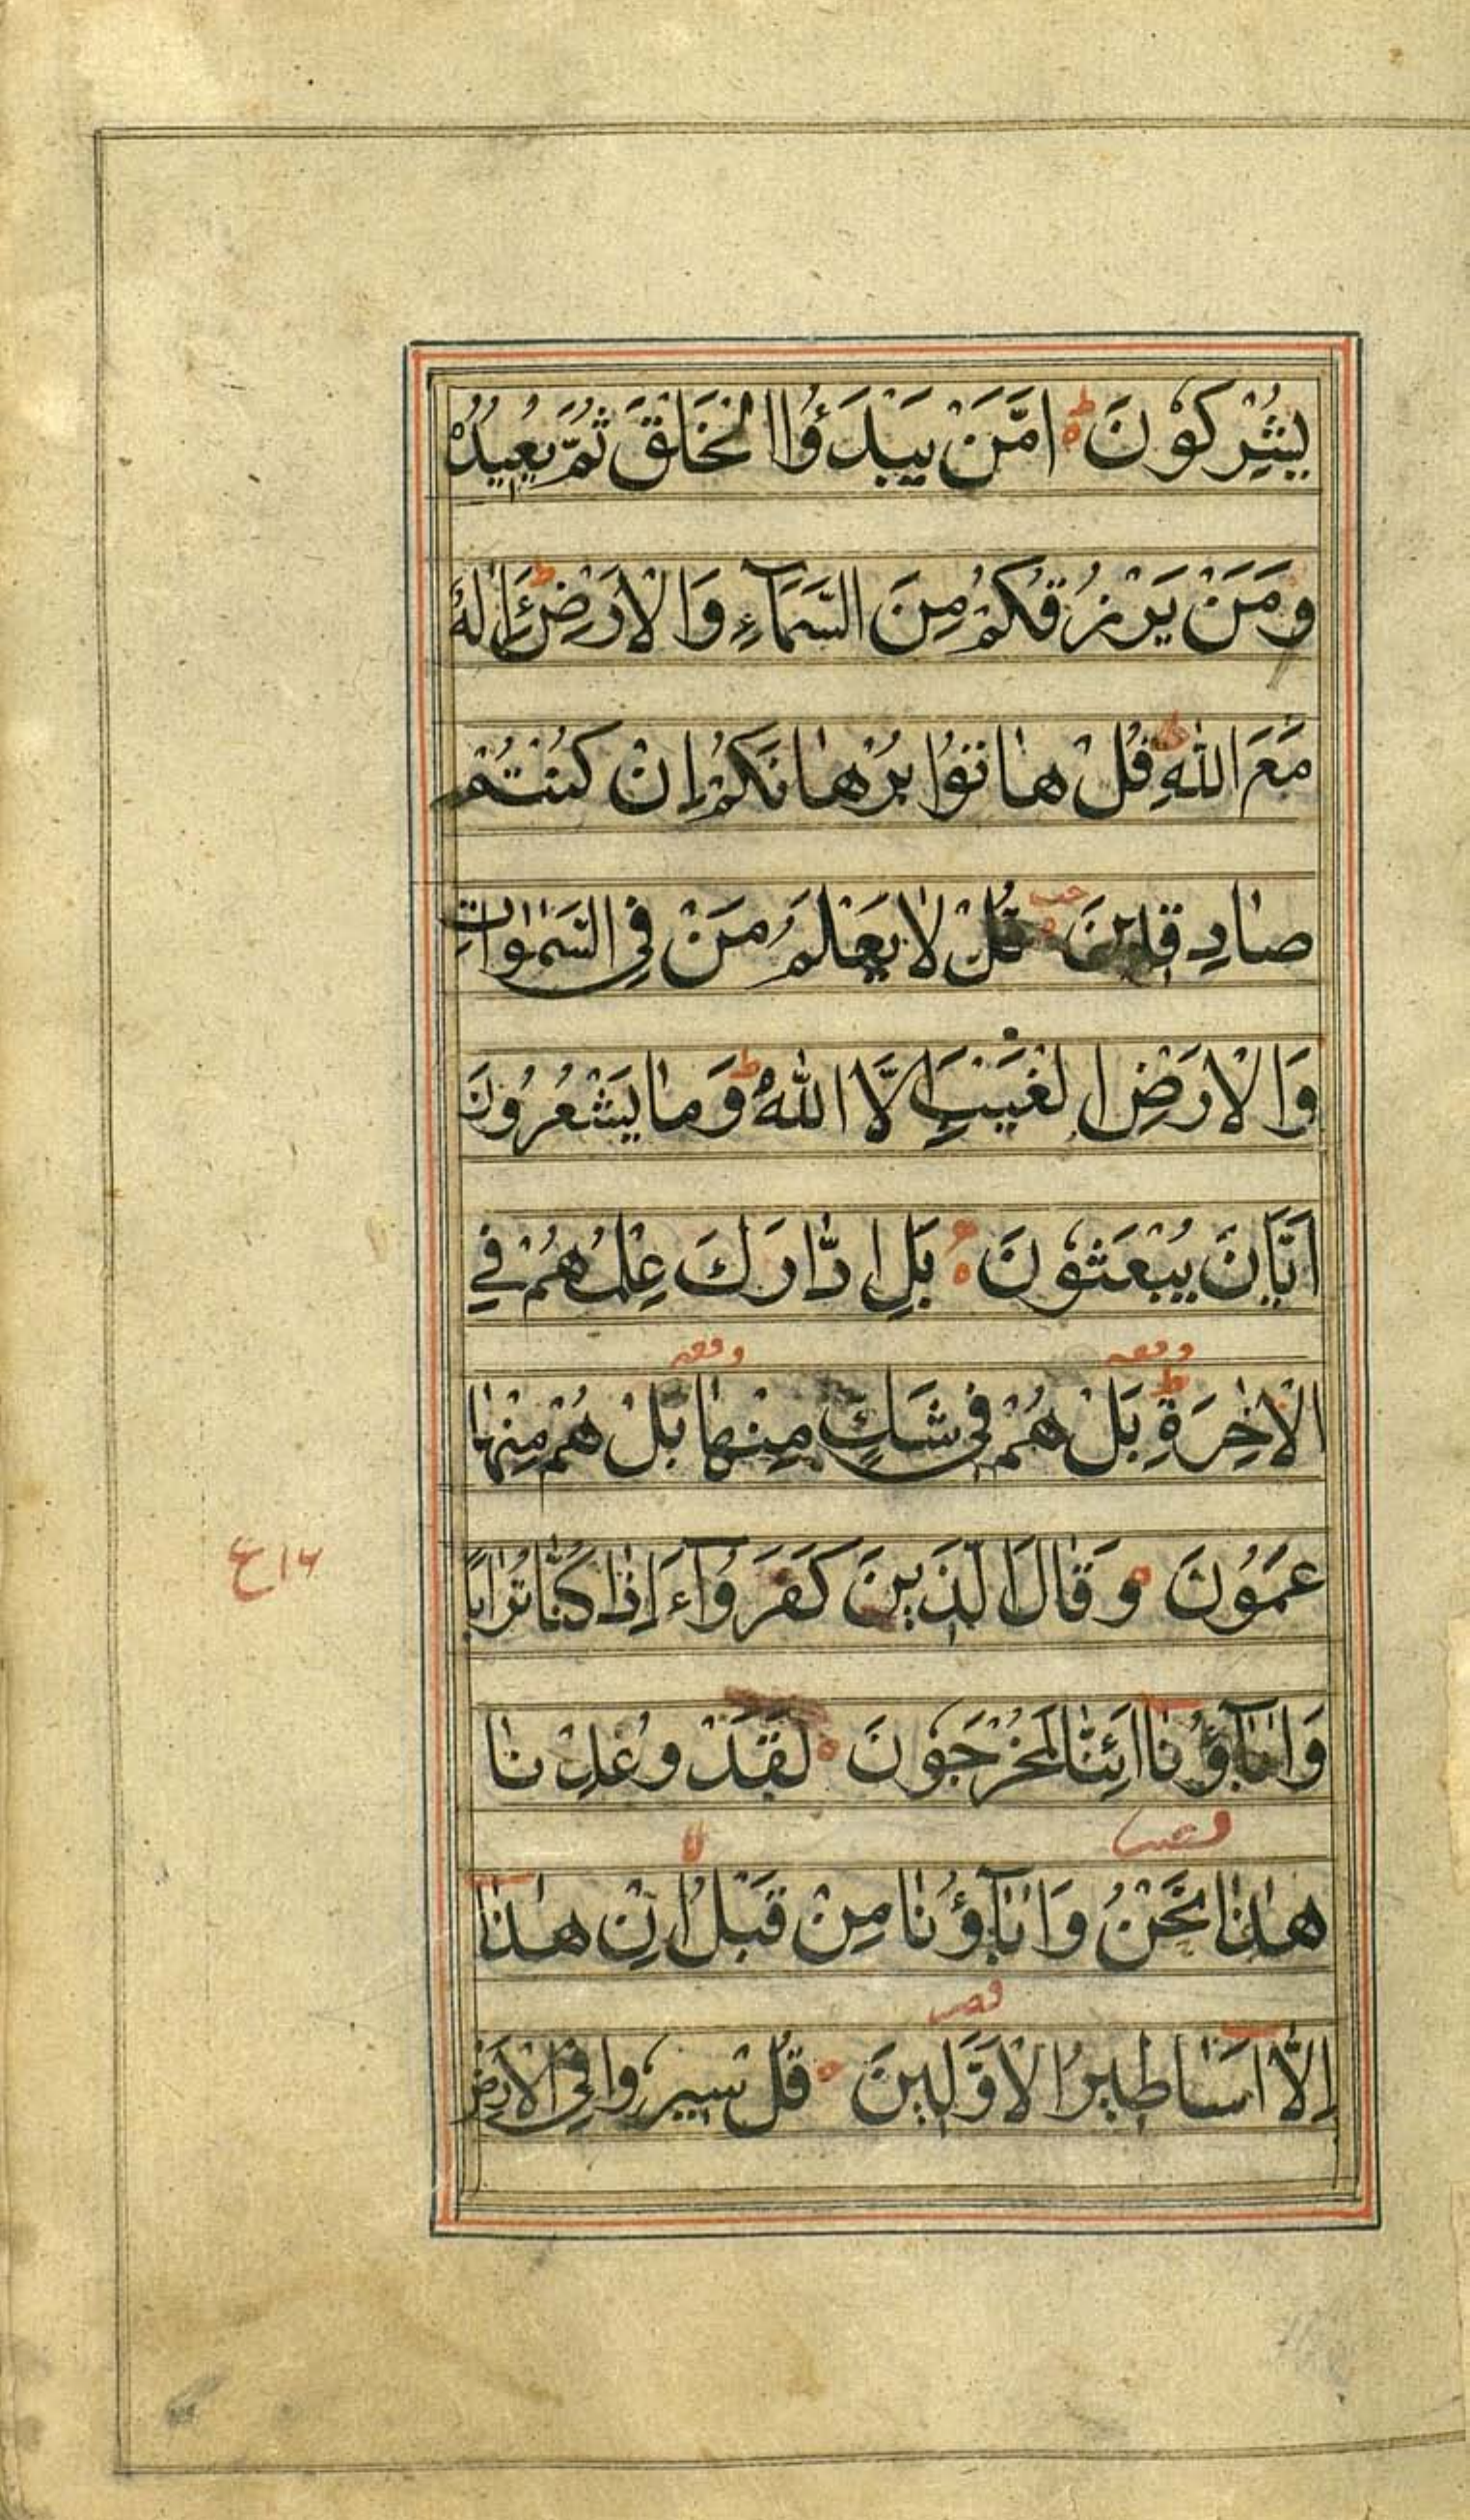 يُشْرِكُوْنَ ۝ ط اَمَّنْ يَبْدَؤُا الْخَلْقَ ثُمَّ يُعِيْدُهٗ
وَمَنْ يَرْزُقُكُمْ مِنَ السَّمَآءِ وَالْاَرْضِ ط ءَاِلٰهٌ
مَعَ اللّٰهِ ط قُلْ هٰاتُوْا بُرْهٰانَكُمْ اِنْ كُنْتُمْ
صٰادِقِيْنَ ۝ قُلْ لٰا يَعْلَمُ مَنْ فِي السَّمٰوٰاتِ
وَالْاَرْضِ الْغَيْبَ اِلَّا اللّٰهُ ط وَمٰا يَشْعُرُوْنَ
اَيّٰانَ يُبْعَثُوْنَ ۝ بَلِ ادّٰارَكَ عِلْمُهُمْ فِي
وقفه وقفه
الْاٰخِرَةِ ط بَلْ هُمْ فِي شَكٍّ مِنْهٰا بَلْ هُمْ مِنْهٰا
عَمُوْنَ ۝ وَقٰالَ الَّذِيْنَ كَفَرُوْآ ءَاِذٰا كُنّٰا تُرٰابًا
ع ١٦
وَاٰبٰآؤُنٰا اَئِنّٰا لَمُخْرَجُوْنَ ۝ لَقَدْ وُعِدْنٰا
هٰذٰا نَحْنُ وَاٰبٰآؤُنٰا مِنْ قَبْلُ لا اِنْ هٰذٰا
اِلَّا اَسٰاطِيْرُ الْاَوَّلِيْنَ ۝ قُلْ سِيْرُوا فِي الْاَرْضِ